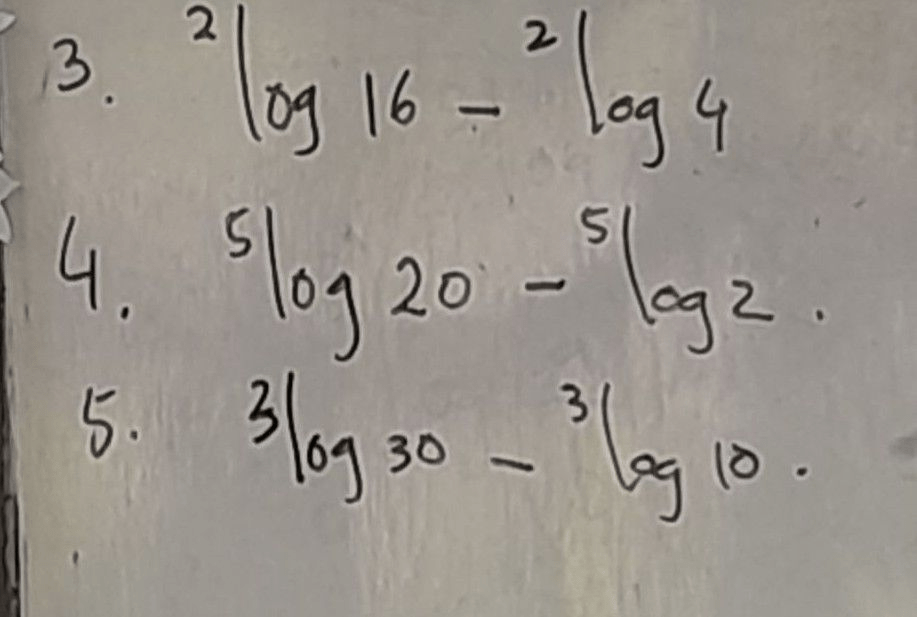 3. ²log 16 - ²log 4
4. ⁵log 20 - ⁵log 2.
5. ³log 30 - ³log 10.